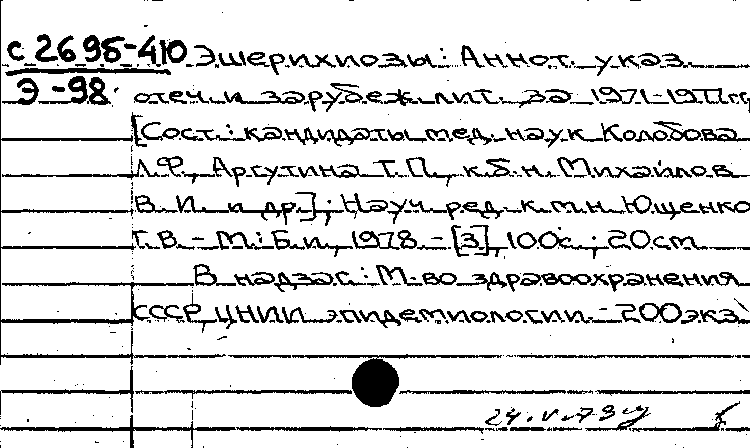 С 2695-410 Эшерихиозы: Аннот. указ.
Э-98 отеч. и зарубеж. лит. за 1971-1977гг.
[Сост.: кандидаты мед. наук Колобова
Л.Ф., Аргутина Т.П., к.б.н. Михайлов
В.И. и др.]; Науч. ред. к.м.н. Ющенко
Г.В. - М.: Б.и., 1978. - [3], 100с.; 20см.
В надзаг.: М-во здравоохранения
СССР, ЦНИИ эпидемиологии. - 200экз.
24.V.79